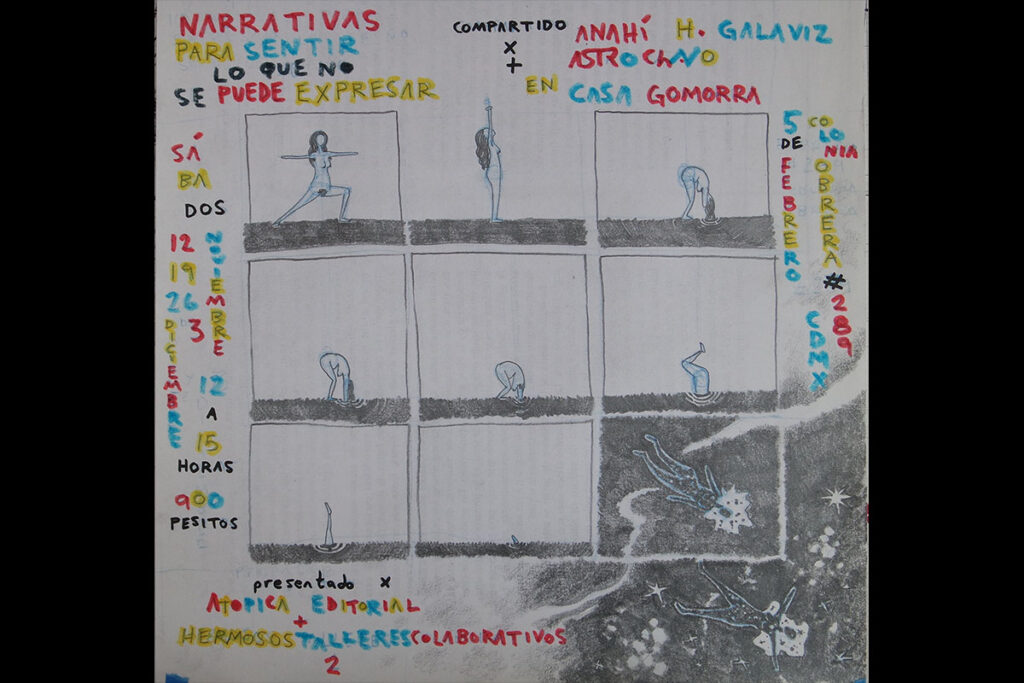 NARRATIVAS
PARA SENTIR
LO QUE NO
SE PUEDE EXPRESAR
COMPARTIDO
X
+
ANAHÍ H. GALAVIZ
ASTROCHAVO
EN CASA GOMORRA
SÁ
BA
DOS
12
19
26
3
NOVIEMBRE
DICIEMBRE
12
A
15
HORAS
900
PESITOS
5
DE
FEBRERO
COLONIA
OBRERA
#
289
CDMX
presentado x
ATOPICA EDITORIAL
+
HERMOSOS TALLERES COLABORATIVOS
2